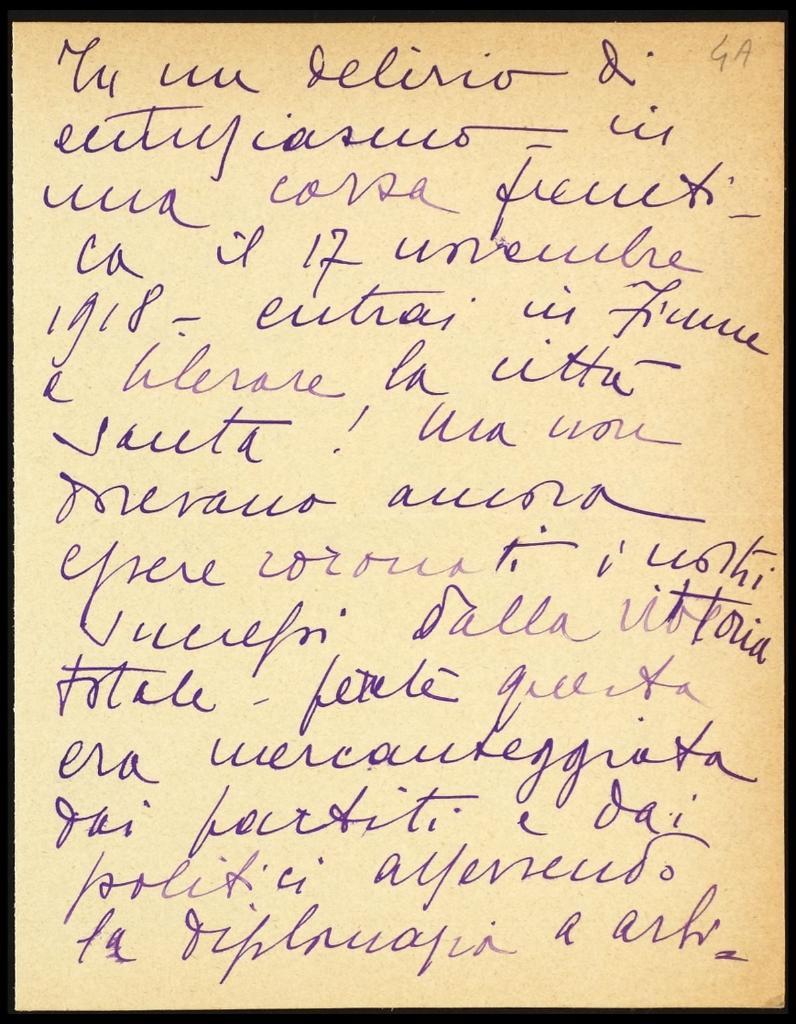 4A
In un delirio di
entusiasmo – in
una corsa freneti-
ca il 17 novembre
1918 – entrai in Fiume
a liberare la città
santa! Ma non
dovevano ancora
essere coronati i nostri
successi dalla vittoria
totale – perchè questa
era mercanteggiata
dai partiti e dai
politici asservendo
la diplomazia a arbi=